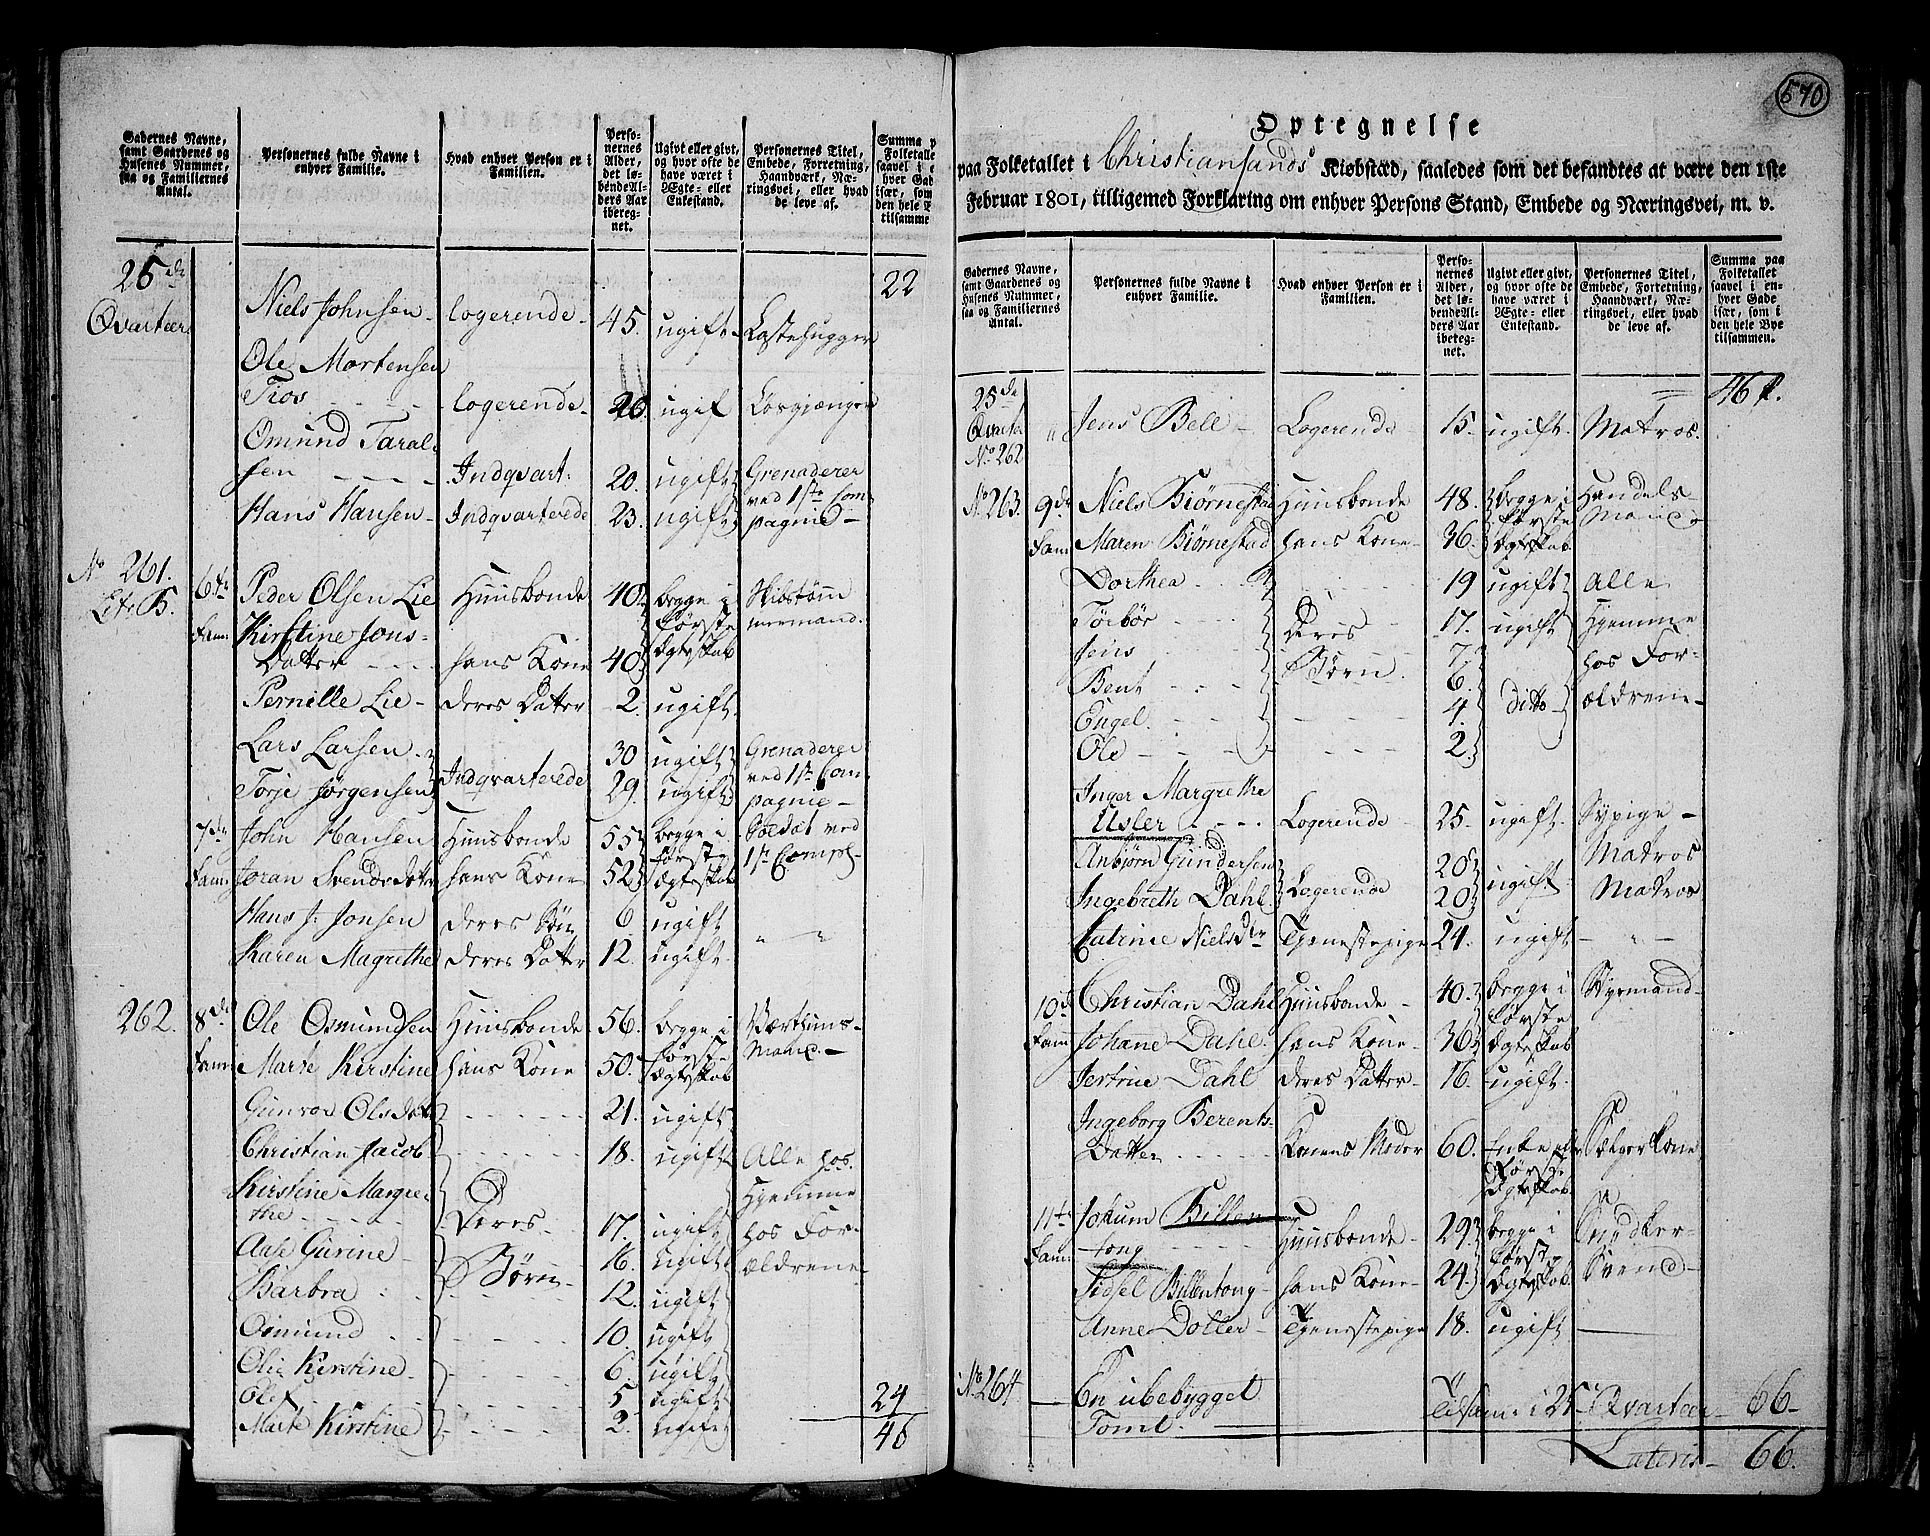 Gadernes Navne, samt Gaardenes og Husenes Nummer, saa og Familiernes Antal.
Personernes fulde Navne i enhver Familie.
Hvad enhver Person er i Familien.
Personernes Alder, det løbende Alders Aar iberegnet.
Ugivt eller givt, og hvor ofte de have været i Ægte- eller Enkestand.
Personernes Titel, Embede, Forretning, Haandværk, Næringsvei, eller hvad de leve af.
Summa p
Folketalle
saavel i e
hver Gad
især, som
den hele B
tilsamme
25de Qvarteer 22
Niels Johnsen - logerende - 45. ugift - Lastehugger
Ole Mortensen
Tios logerende - 20. ugif
Omund Taral-
sen Indqvart: 20. ugift Grenaderer
Hans Hansen - Indqvarterede 23. ugift ved 1ste Com-
pagnie -
No 261. Litr B. 6te Fam:
Peder Olsen Lie Huusbonde 40 begge i første Ægteskab Skibstømmermand.
Kirstine Jons-
Datter hans Kone 40
Pernille Lie - deres Datter 2. ugift.
Lars Larsen - Indqvarterede 30 ugift Grenaderer
Torje Jørgensen 29. ugift ved 1ste Com-
pagnie -
7de Fam: John Hansen Huusbonde 55 begge i første Ægteskab Soldat ved 1ste Comp:
Joran Svendsdatter hans Kone 52
Hans J. Jonsen deres Søn 6 ugift
Karen Magrethe deres Datter 12. ugift.
262. 8de Fam:
Ole Osmundsen Huusbonde 56. begge i første Ægteskab Værthuus-
Mand. -
Marte Kirstine hans Kone 50.
Gunvor Olsdatter 21. ugift
Christian Jacob 18. ugift Alle hos
Kirstine Margre-
the Deres 17. ugift Hjemme hos For-
Anne Gurine Børn 16. ugift ældrene
Barbra 12. ugift
Osmund 10. ugift
Olie Kirstine 6. ugift
Olef 5 ugift 24
Marte Kirstine 2. ugift 46
570
Optegnelse
paa Folketallet i Christiansands Kiøbstæd, saaledes som det befandtes at være den 1ste
Februar 1801, tilligemed Forklaring om enhver Persons Stand, Embede og Næringsvei, m. v.
Gadernes Navne, samt Gaardenes og Husenes Nummer, saa og Familiernes Antal.
Personernes fulde Navne i enhver Familie.
Hvad enhver Person er i Familien.
Personernes Alder, det løbende Alders Aar iberegnet.
Ugivt eller givt, og hvor ofte de have været i Ægte- eller Enkestand.
Personernes Titel, Embede, Forretning, Haandværk, Næringsvei, eller hvad de leve af.
Summa paa Folketallet saavel i enhver Gade især, som i den hele Bye tilsammen.
46
25de Qvarte No 262 Jens Bell - Logerende 15. ugift. Matros.
No 263. 9de Fam:
Niels Biørnestad Huusbonde 48. begge i første Ægteskab Handels-
Mand
Maren Biørnestad hans Kone - 36.
Dorthea 19 ugift Alle
Torbør Deres 17. ugift Hjemme
Jens Børn. 7. hos For-
Bent 6.
Engel. 4. ditto ældrene -
Ole 2.
Inger Margrethe
Usler Logerende 25. ugift. Sypige -
Anbjørn Gundersen Logerende 20 ugift. Matros
Ingebreth Dahl 20 Matros
Catrine Nielsdtr Tjenestepige 24. ugift
10de Fam: Christian Dahl Huusbonde - 40. begge i første Ægteskab Styrmand -
Johanne Dahl. hans Kone - 36
Jertrine Dahl deres Datter - 16. ugift.
Ingeborg Berents-
Datter Konens Moder 60. Enke efter Første Ægteskab Sælgerkone
11te Fam: Jokum Billen-
tong Huusbonde - 29 begge i første Ægteskab Snedker-
Svend -
Sidsel Billentong - hans Kone - 24.
Anne Dotter - Tjenestepige 18. ugift
No 264 En ubebygget
Tomt.
Tilsam: i 25 Qvarteer 66 -
Lateris - 66.